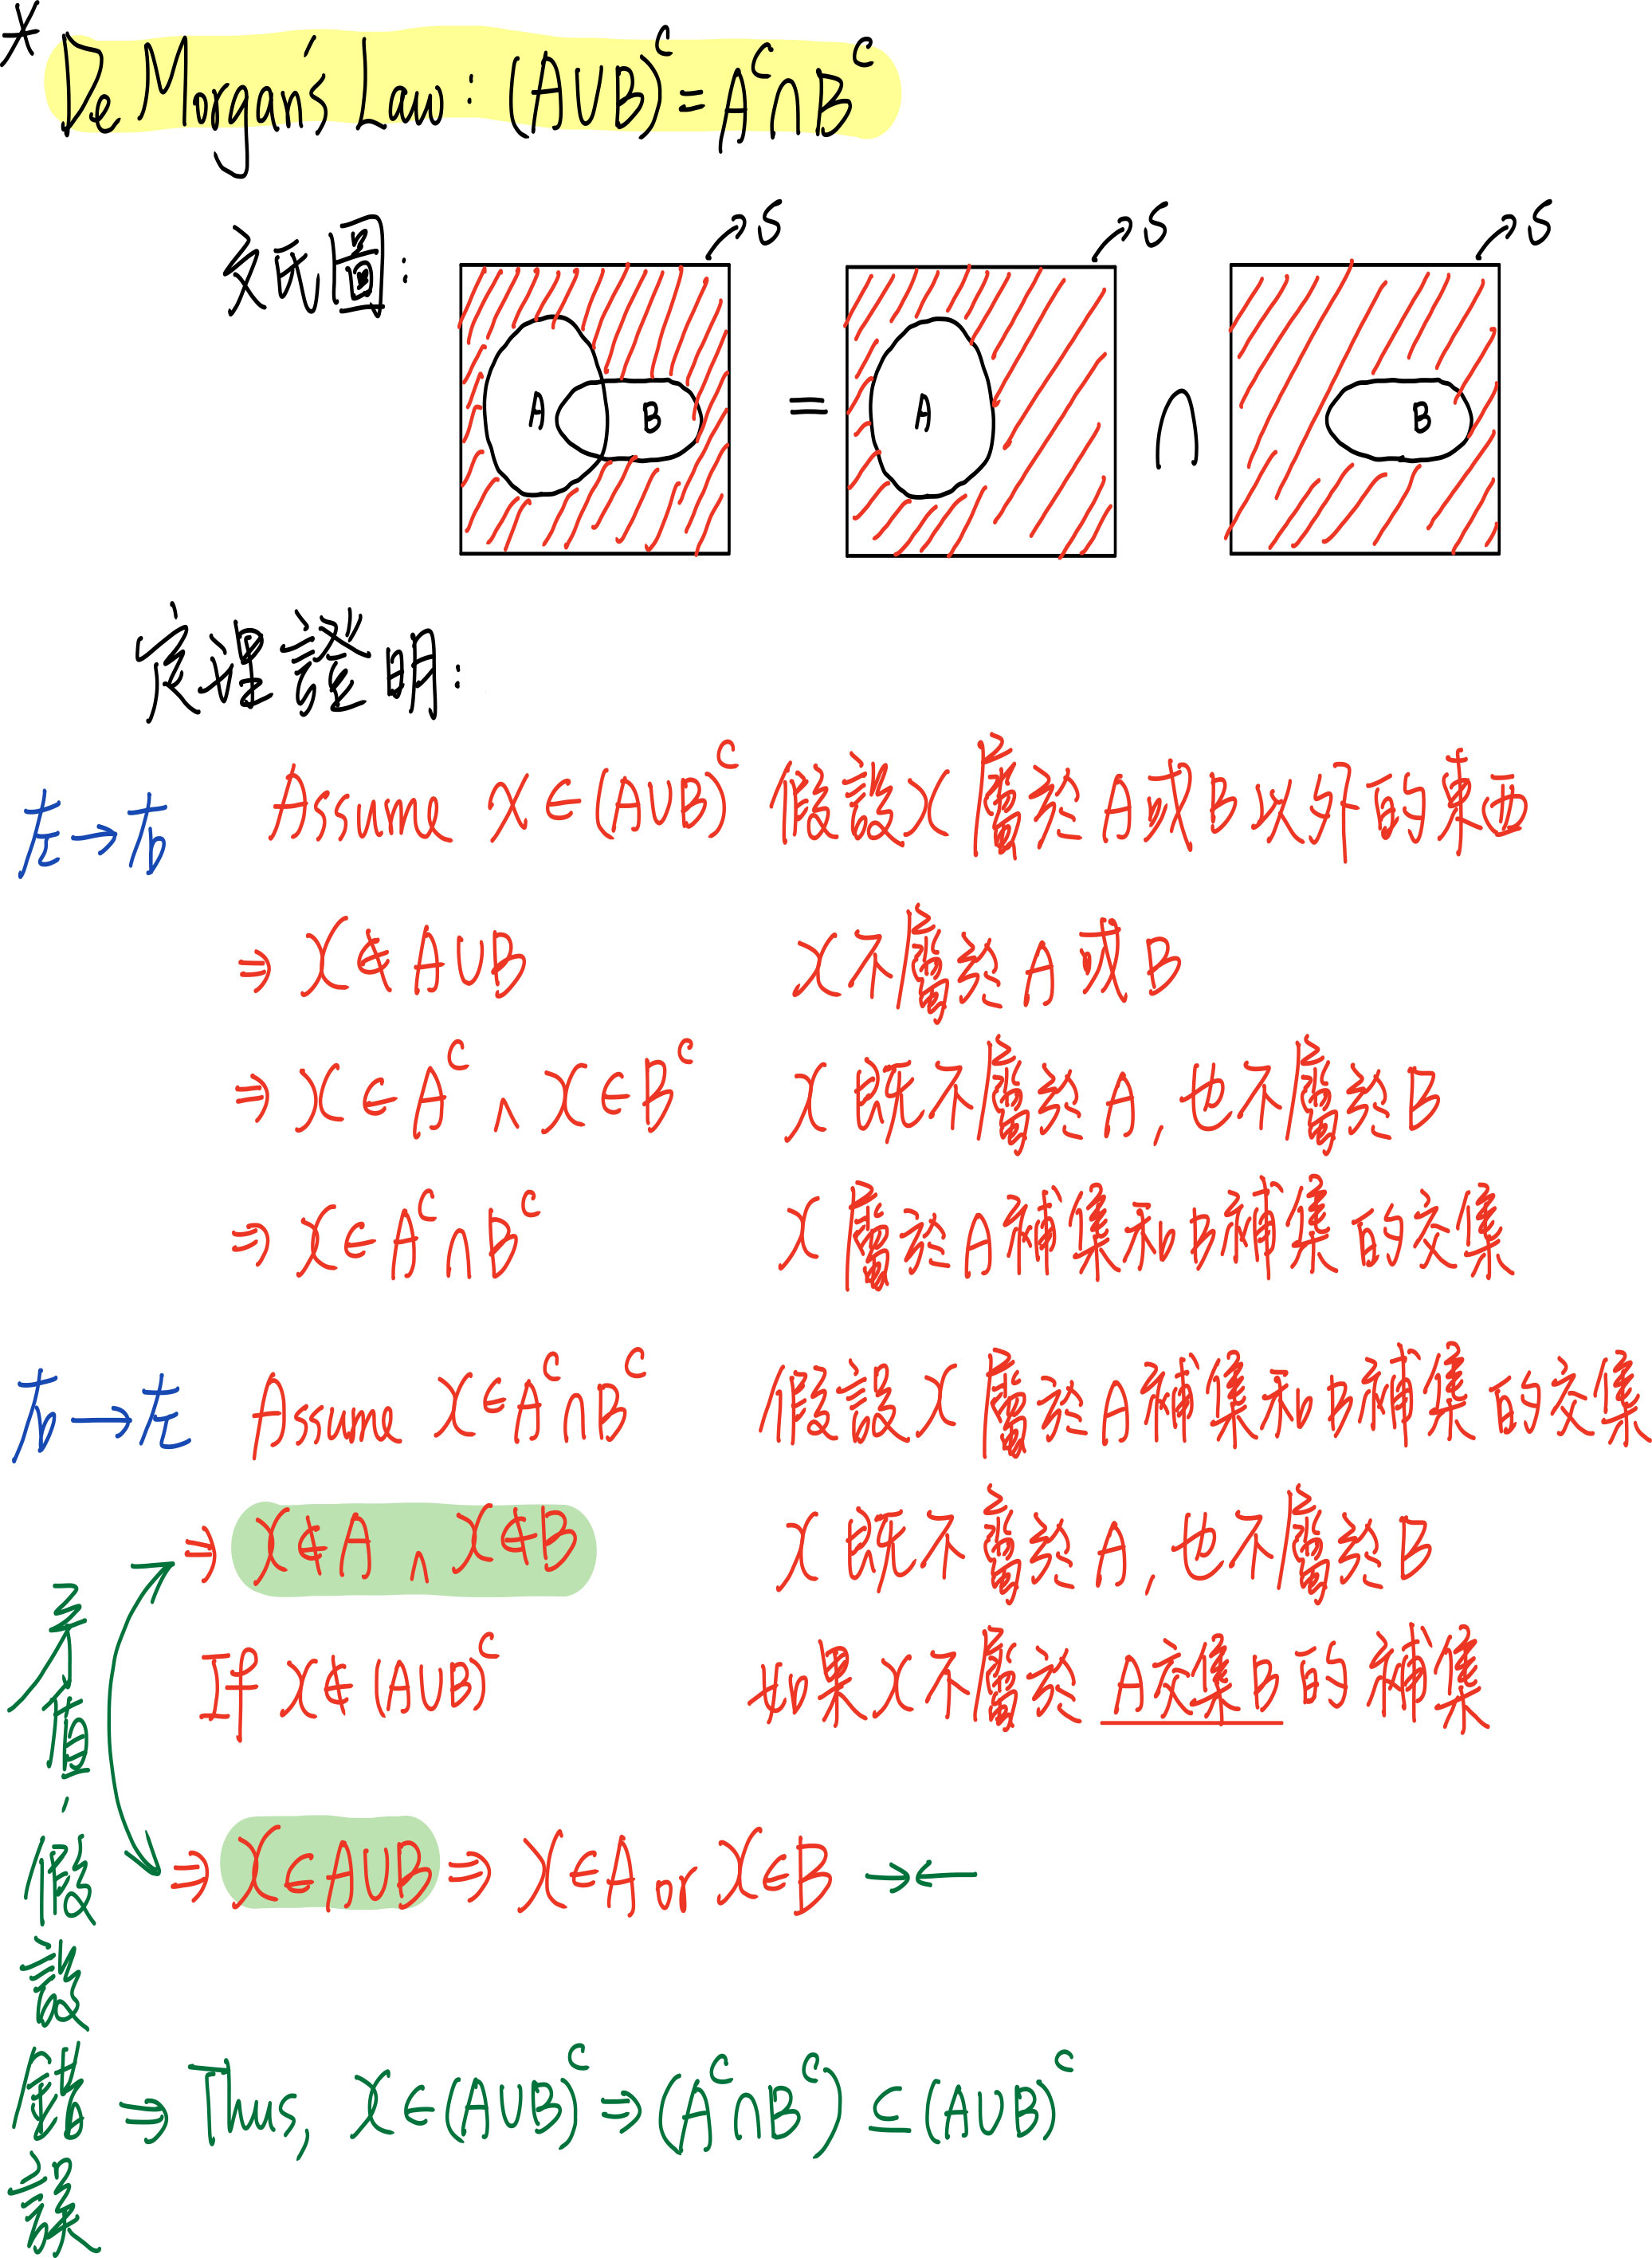 * De Morgan's Law: (A∪B)^C = A^C∩B^C
文氏圖:
S S S
A B = A ∩ B
定理證明:
左→右 Assume x∈(A∪B)^C 假設x屬於A或B以外的東西
⇒ x∉A∪B x不屬於A或B
⇒ x∈A^C ∧ x∈B^C x既不屬於A,也不屬於B
⇒ x∈A^C∩B^C x屬於A補集和B補集的交集
右→左 Assume x∈A^C∩B^C 假設x屬於A補集和B補集的交集
⇒ x∉A ∧ x∉B x既不屬於A,也不屬於B
If x∉(A∪B)^C 如果x不屬於A交集B的補集
⇒ x∈A∪B ⇒ x∈A or x∈B →←
矛盾、假設錯誤
⇒ Thus, x∈(A∪B)^C ⇒ (A^C∩B^C) ⊆ (A∪B)^C